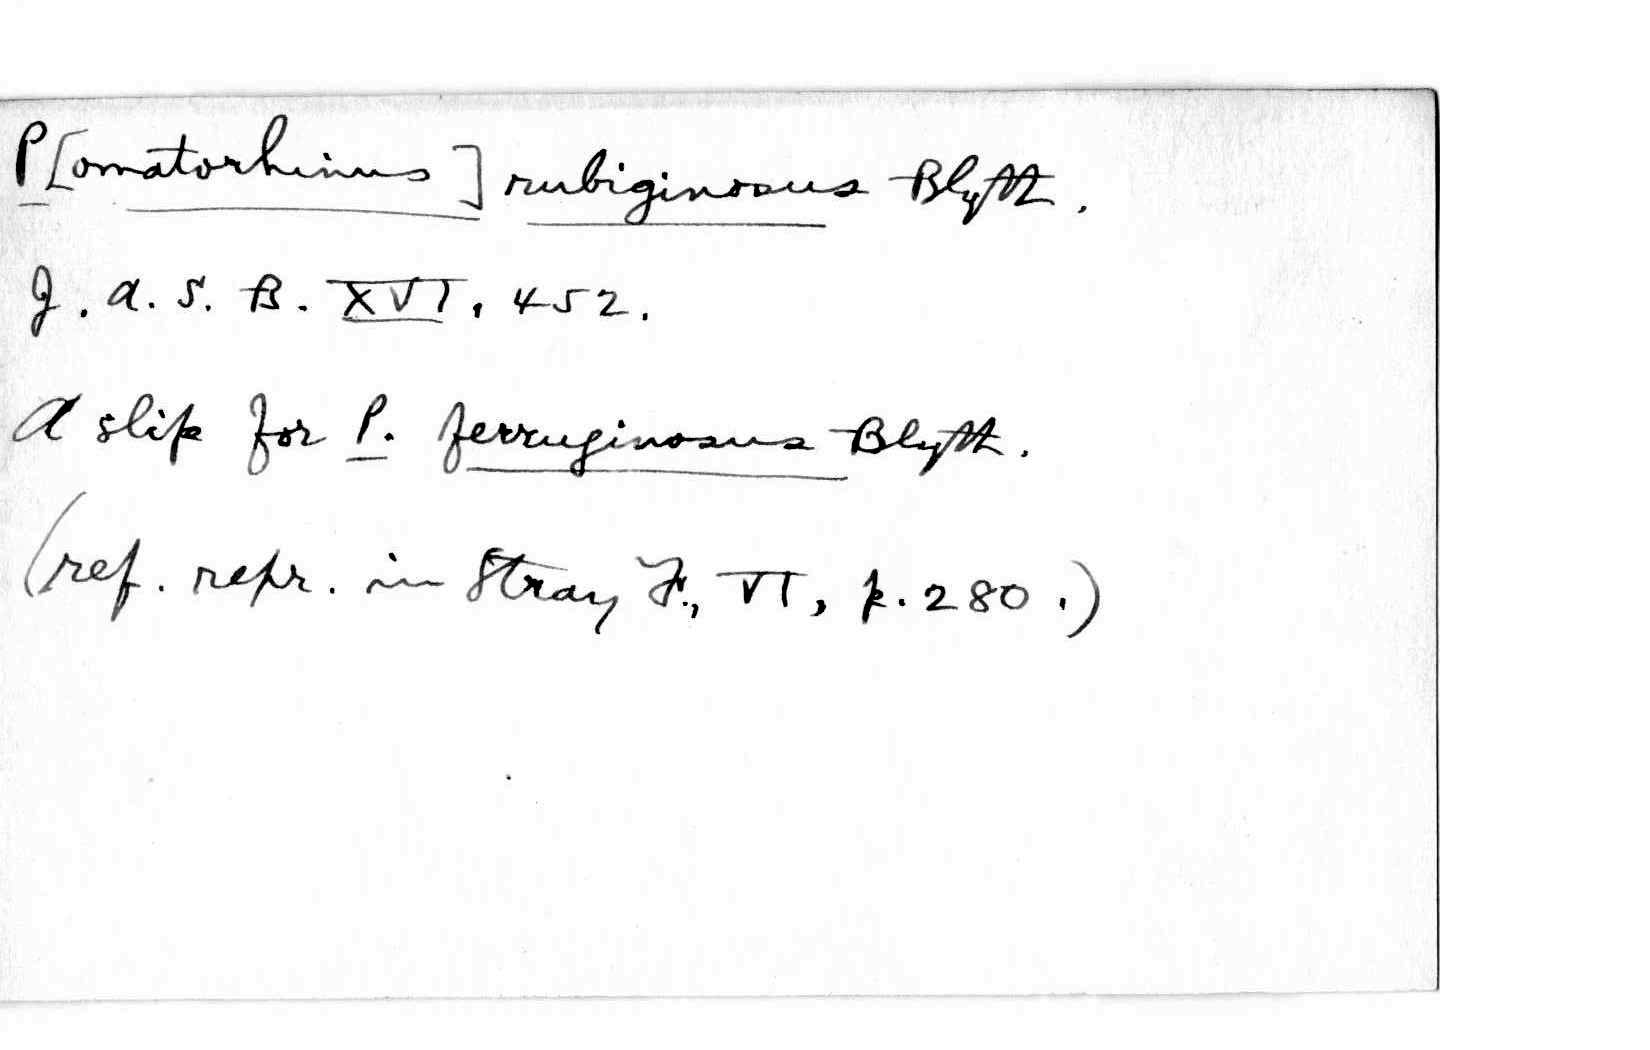 P[omatorhinus] rubiginosus Blyth.
J. A. S. B. XVI, 452.
A slip for P. ferruginosus Blyth.
(ref. repr. in Stray F., VI, p. 280.)